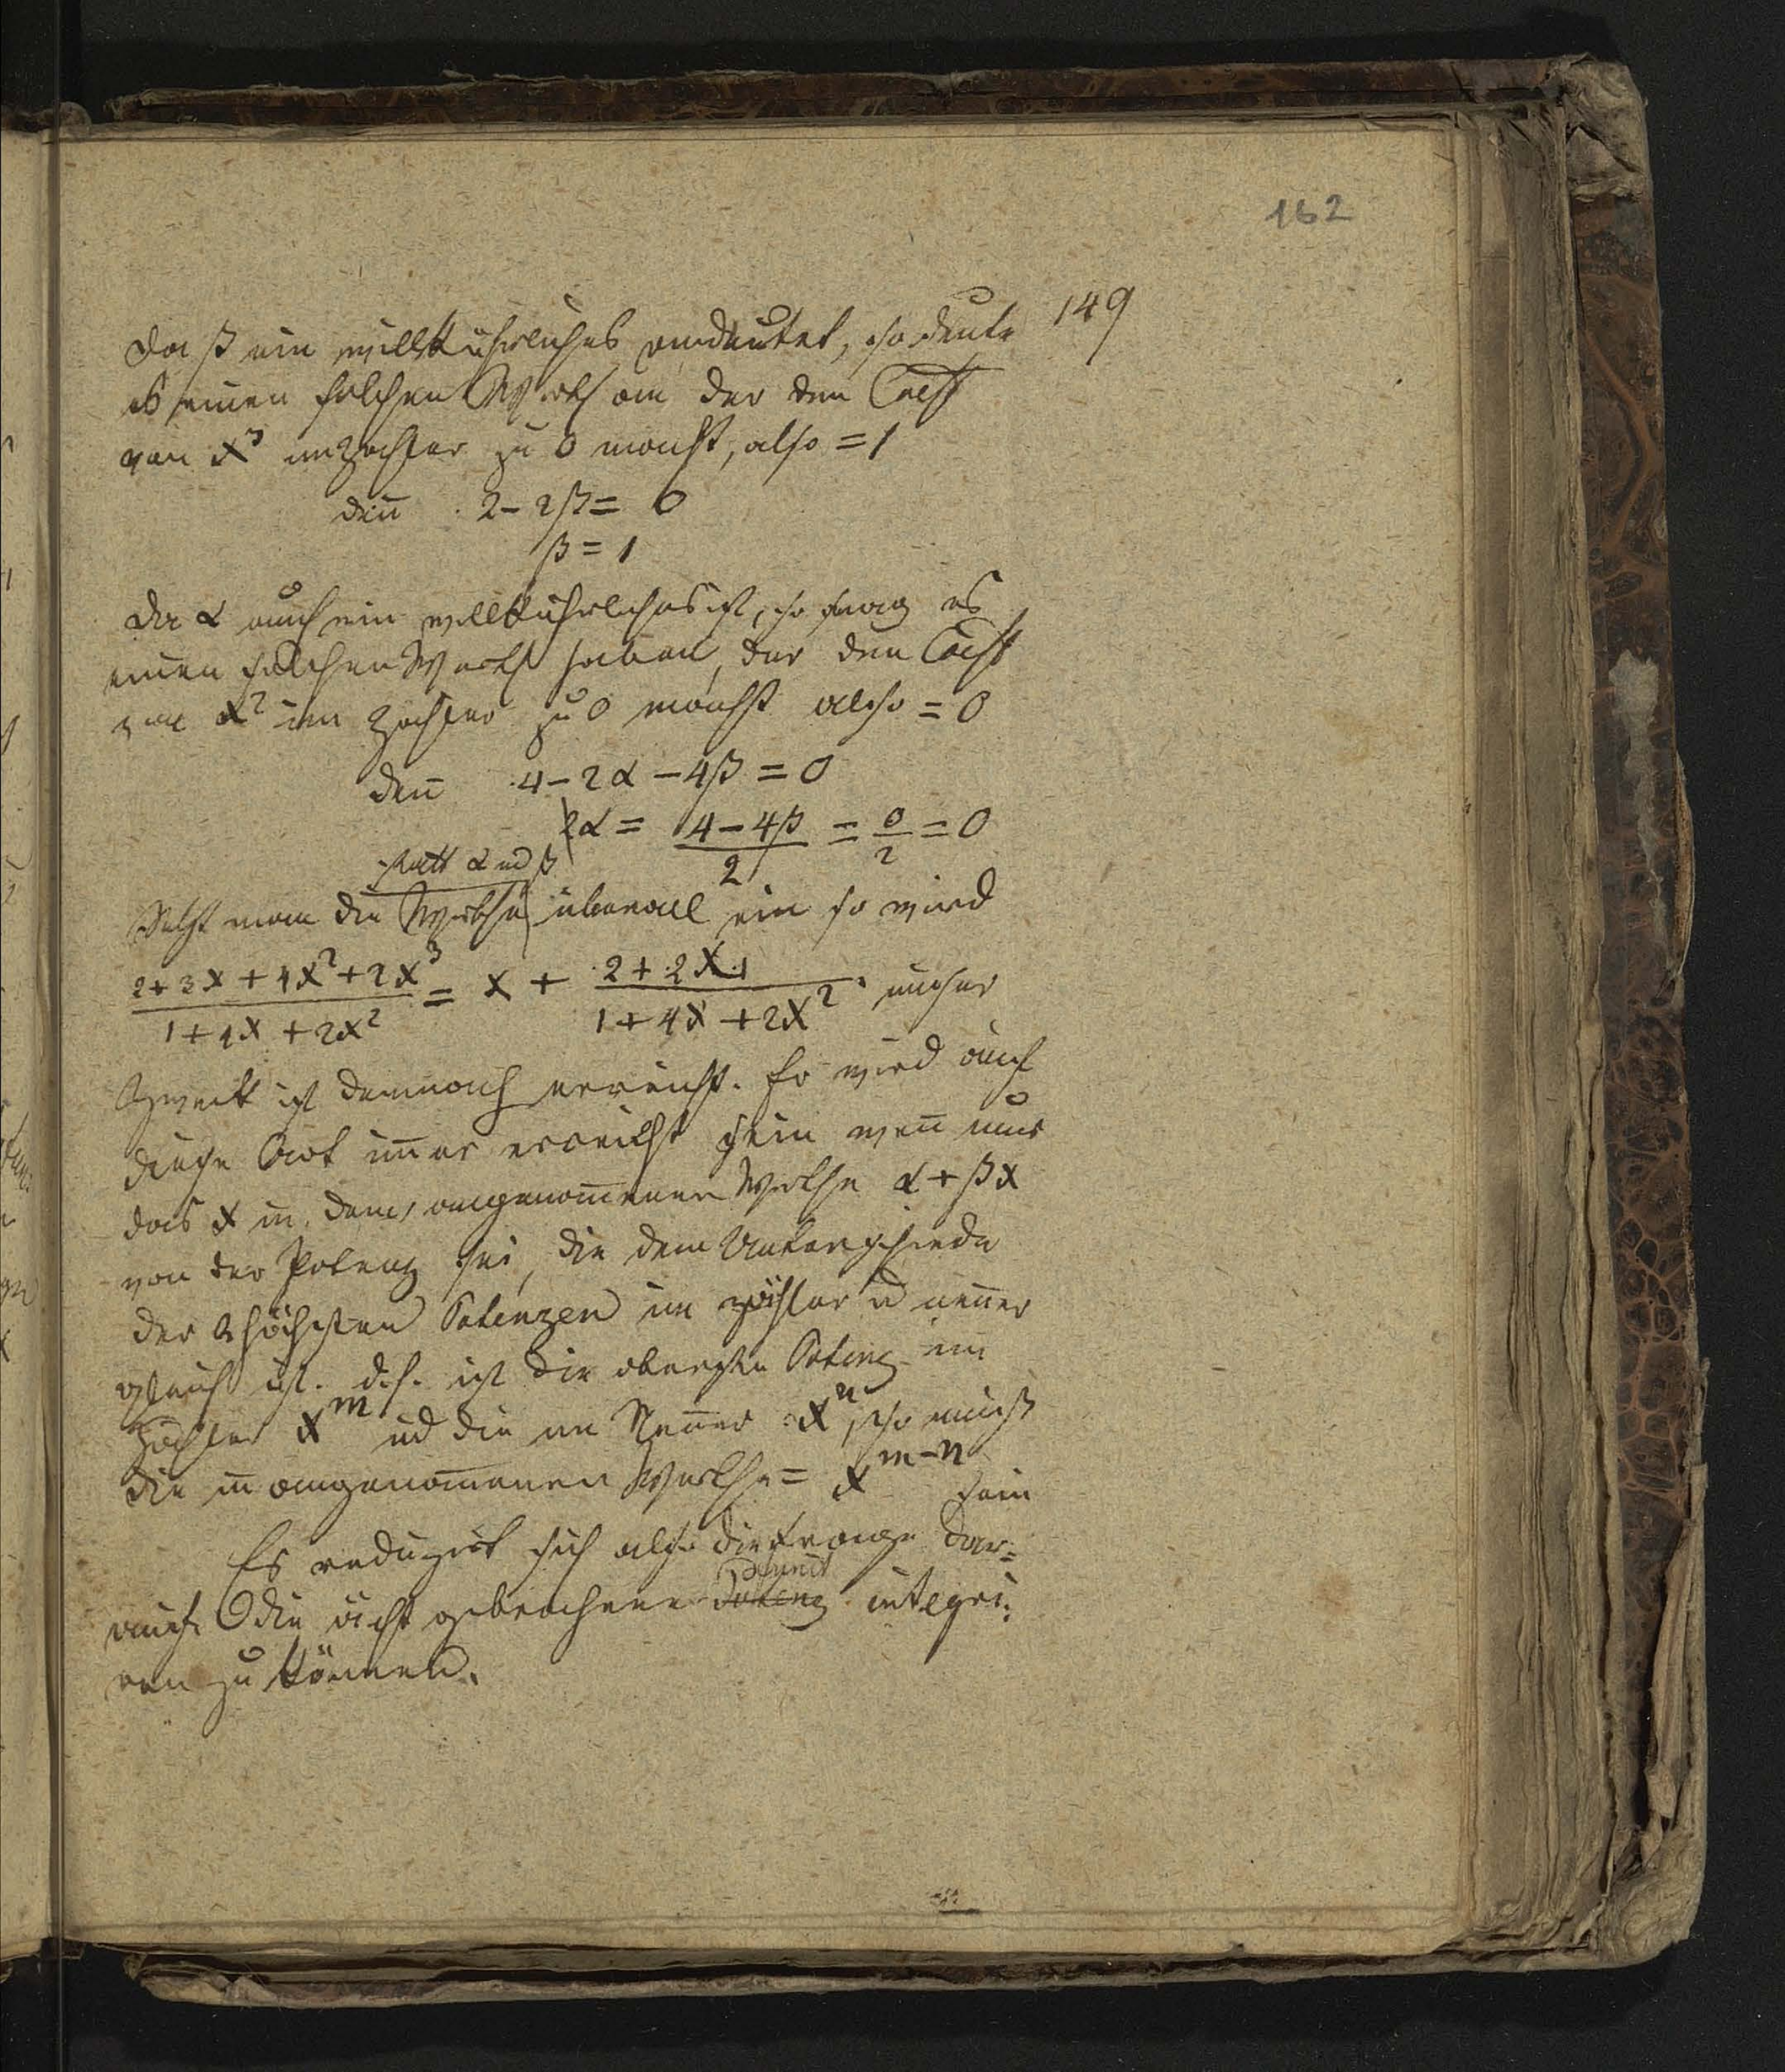 162
149
Da β ein willkührliches andeutet, so deute
es einen solchen Werth an der den Coeff
von x³ im Zähler zu 0 macht, also = 1
den̅ 2 - 2β = 0
β = 1
Da α auch ein willkührliches ist, so mag es
einen solchen Werth haben, der den Coeff
von x² im Zähler zu 0 macht also = 0
den̅ 4 - 2α - 4β = 0
α = (4 - 4β)/2 = 0/2 = 0
statt α und β
Setzt man die Werthe überall ein so wird
(2 + 3x + 4x² + 2x³)/(1 + 4x + 2x²) = x + (2 + 2x)/(1 + 4x + 2x²) unser
Zweck ist demnach erreicht. Er wird auf
diese Art im̅er erreicht sein wen̅ nur
das x in dem angenom̅enen Werthe α + βx
von der Potenz sei, die dem Unterschiede
der höchsten Potenzen im Zähler u nen̅er
gleich ist. d.h. ist die oberste Potenz im
Zähler x^m und die im Nen̅er x^n, so muß
die im angenom̅enen Werthe = x^(m-n) sein
Es reduzirt sich also die Frage dar=
auf die ächt gebrochene Potenz integri=
ren zu können.